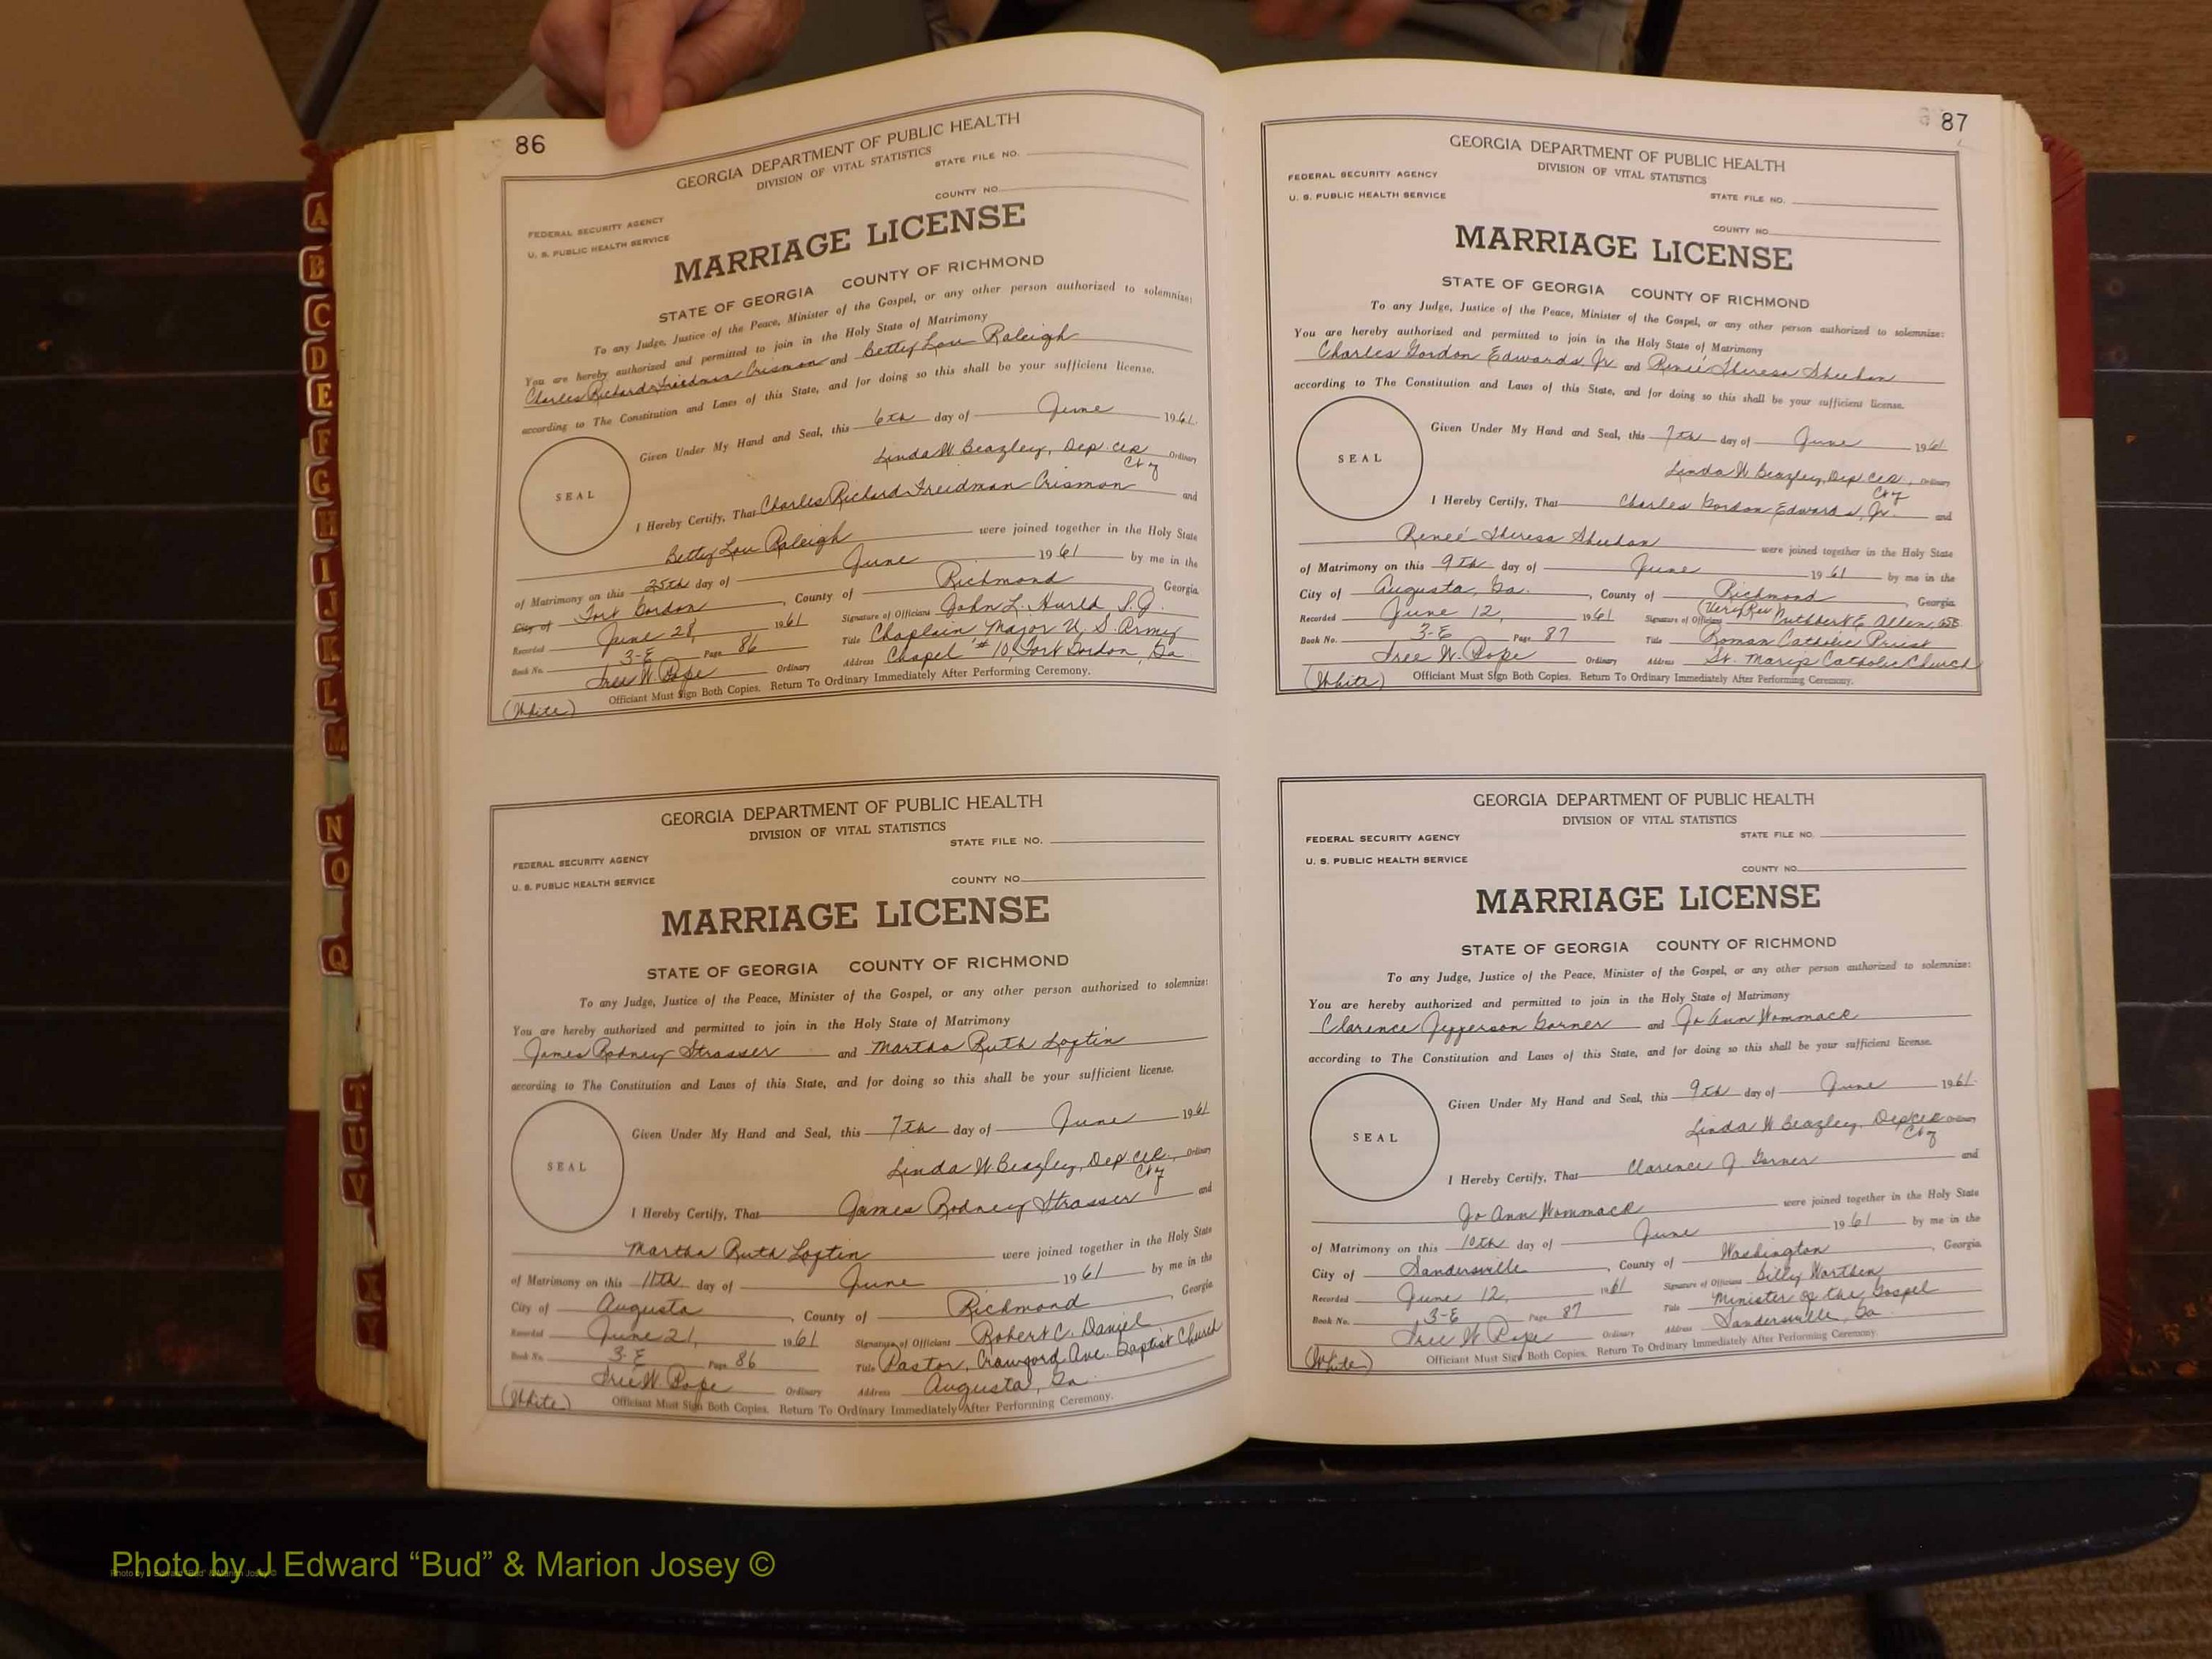 86
GEORGIA DEPARTMENT OF PUBLIC HEALTH
DIVISION OF VITAL STATISTICS
STATE FILE NO.
COUNTY NO.
FEDERAL SECURITY AGENCY
U. S. PUBLIC HEALTH SERVICE
MARRIAGE LICENSE
STATE OF GEORGIA COUNTY OF RICHMOND
To any Judge, Justice of the Peace, Minister of the Gospel, or any other person authorized to solemnize:
You are hereby authorized and permitted to join in the Holy State of Matrimony
Charles Richard Freidman Crismon and Betty Lou Raleigh
according to The Constitution and Laws of this State, and for doing so this shall be your sufficient license.
SEAL
Given Under My Hand and Seal, this 6th day of June 1961
Linda W. Beazley, Dep. Clk Ordinary
Cty
I Hereby Certify, That Charles Richard Freidman Crismon and
Betty Lou Raleigh were joined together in the Holy State
of Matrimony on this 25th day of June 1961 by me in the
City of Fort Gordon, County of Richmond Georgia
Recorded June 28, 1961 Signature of Officiant John L. Hurld, S.J.
Book No. 3-E Page 86 Title Chaplain Major U. S. Army
Tree W. Pope Ordinary Address Chapel #10, Fort Gordon, Ga
(White) Officiant Must Sign Both Copies. Return To Ordinary Immediately After Performing Ceremony.
GEORGIA DEPARTMENT OF PUBLIC HEALTH
DIVISION OF VITAL STATISTICS
STATE FILE NO.
FEDERAL SECURITY AGENCY
U. S. PUBLIC HEALTH SERVICE
COUNTY NO.
MARRIAGE LICENSE
STATE OF GEORGIA COUNTY OF RICHMOND
To any Judge, Justice of the Peace, Minister of the Gospel, or any other person authorized to solemnize:
You are hereby authorized and permitted to join in the Holy State of Matrimony
James Rodney Strasser and Martha Ruth Loftin
according to The Constitution and Laws of this State, and for doing so this shall be your sufficient license.
SEAL
Given Under My Hand and Seal, this 7th day of June 1961
Linda W. Beazley, Dep. Clk., Ordinary
Cty
I Hereby Certify, That James Rodney Strasser and
Martha Ruth Loftin were joined together in the Holy State
of Matrimony on this 11th day of June 1961 by me in the
City of Augusta, County of Richmond, Georgia
Recorded June 21, 1961 Signature of Officiant Robert C. Daniel
Book No. 3-E Page 86 Title Pastor, Crawford Ave. Baptist Church
Tree W. Pope Ordinary Address Augusta, Ga.
(White) Officiant Must Sign Both Copies. Return To Ordinary Immediately After Performing Ceremony.
87
GEORGIA DEPARTMENT OF PUBLIC HEALTH
DIVISION OF VITAL STATISTICS
FEDERAL SECURITY AGENCY
U. S. PUBLIC HEALTH SERVICE
STATE FILE NO.
COUNTY NO.
MARRIAGE LICENSE
STATE OF GEORGIA COUNTY OF RICHMOND
To any Judge, Justice of the Peace, Minister of the Gospel, or any other person authorized to solemnize:
You are hereby authorized and permitted to join in the Holy State of Matrimony
Charles Gordon Edwards, Jr. and Reneé Theresa Sheehan
according to The Constitution and Laws of this State, and for doing so this shall be your sufficient license.
SEAL
Given Under My Hand and Seal, this 7th day of June 1961
Linda W Beazley, Dep. Clk., Ordinary
Cty
I Hereby Certify, That Charles Gordon Edwards, Jr. and
Reneé Theresa Sheehan were joined together in the Holy State
of Matrimony on this 9th day of June 1961 by me in the
City of Augusta, Ga., County of Richmond, Georgia
Recorded June 12, 1961 Signature of Officiant (Very Rev) Cuthbert E Allen, OSB
Book No. 3-E Page 87 Title Roman Catholic Priest
Tree W. Pope Ordinary Address St. Marys Catholic Church
(White) Officiant Must Sign Both Copies. Return To Ordinary Immediately After Performing Ceremony.
GEORGIA DEPARTMENT OF PUBLIC HEALTH
DIVISION OF VITAL STATISTICS
FEDERAL SECURITY AGENCY
STATE FILE NO.
U. S. PUBLIC HEALTH SERVICE
COUNTY NO.
MARRIAGE LICENSE
STATE OF GEORGIA COUNTY OF RICHMOND
To any Judge, Justice of the Peace, Minister of the Gospel, or any other person authorized to solemnize:
You are hereby authorized and permitted to join in the Holy State of Matrimony
Clarence Jefferson Garner and Jo Ann Wommack
according to The Constitution and Laws of this State, and for doing so this shall be your sufficient license.
SEAL
Given Under My Hand and Seal, this 9th day of June 1961
Linda W Beazley, Dep Clk Ordinary
Cty
I Hereby Certify, That Clarence J. Garner and
Jo Ann Wommack were joined together in the Holy State
of Matrimony on this 10th day of June 1961 by me in the
City of Sandersville, County of Washington, Georgia
Recorded June 12, 1961 Signature of Officiant Billy Worthen
Book No. 3-E Page 87 Title Minister of the Gospel
Tree W Pope Ordinary Address Sandersville, Ga.
(White) Officiant Must Sign Both Copies. Return To Ordinary Immediately After Performing Ceremony.
A
B
C
D
E
F
G
H
I
J
K
L
M
N
O
Q
T
U
V
X
Y
Photo by J Edward “Bud” & Marion Josey ©
Photo by J Edward “Bud” & Marion Josey ©